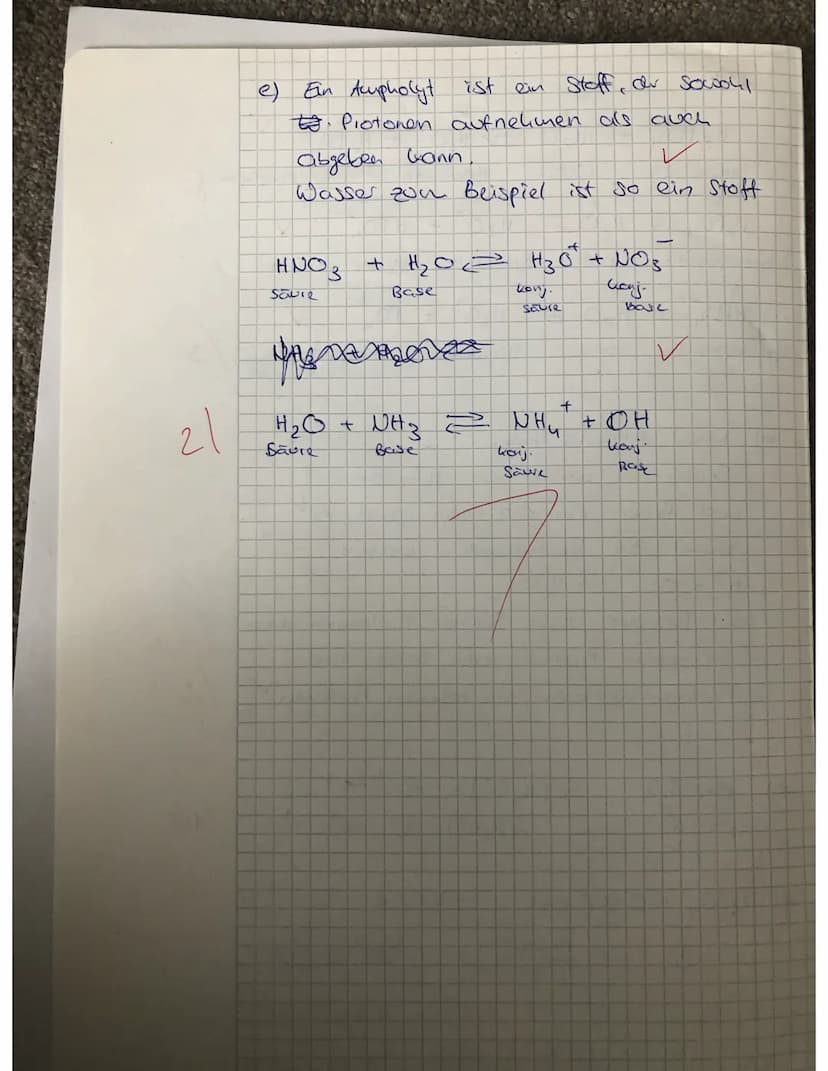 e) Ein Ampholyt ist ein Stoff, der sowohl
Protonen aufnehmen als auch
abgeben kann.
Wasser zum Beispiel ist so ein Stoff
HNO₃ + H₂O ⇌ H₃O⁺ + NO₃⁻
Säure Base konj. Säure konj. Base
2|
H₂O + NH₃ ⇌ NH₄⁺ + OH
Säure Base konj. Säure konj. Base